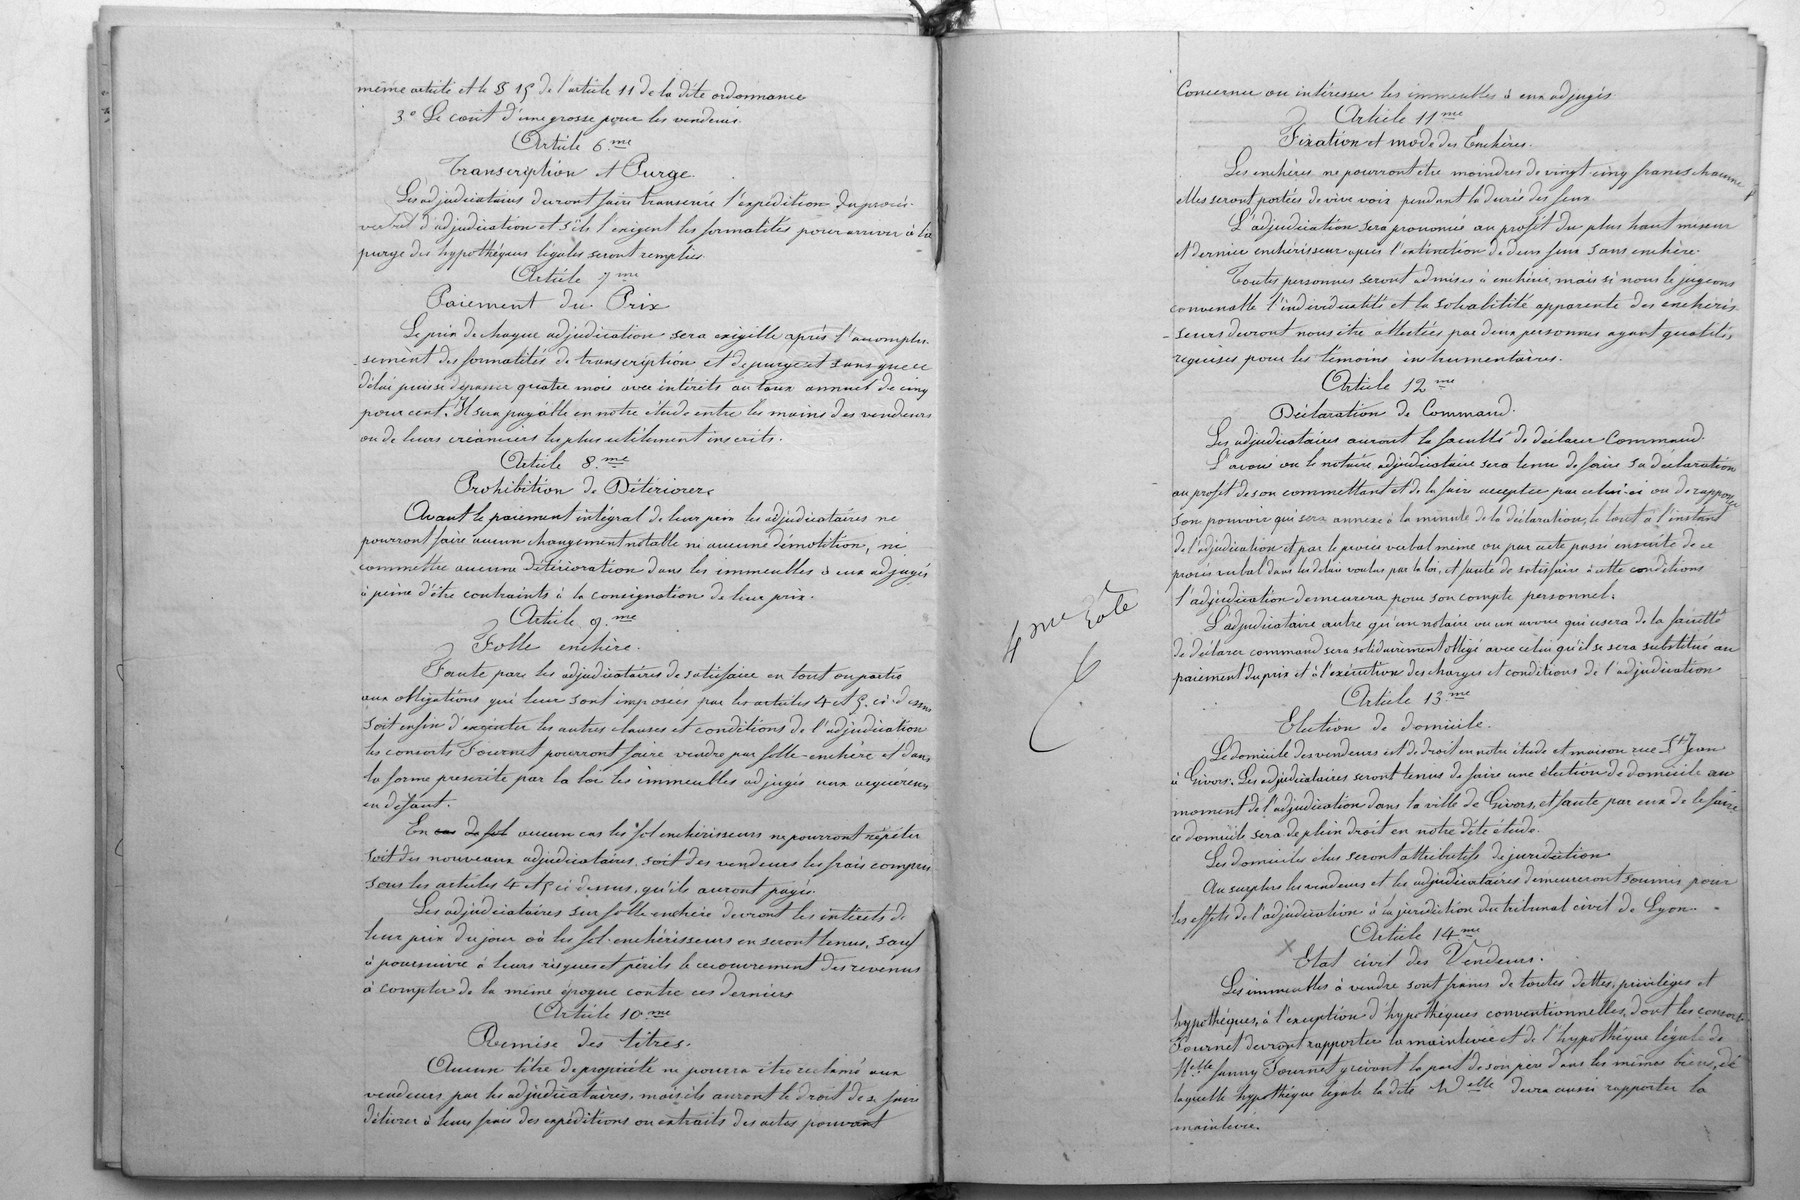 même article et le § 15 de l'article 11 de la dite ordonnance
3° Le coût d'une grosse pour les vendeurs.
Article 6.me
Transcription et Purge.
Les adjudicataires devront faire transcrire l'expédition du procès-
verbal d'adjudication et s'ils l'exigent les formalités pour arriver à la
purge des hypothèques légales seront remplies.
Article 7me
Paiement du Prix
Le prix de chaque adjudication sera exigible après l'accomplis-
sement des formalités de transcription et de purge et sans que ce
délai puisse dépasser quatre mois avec intérêts au taux annuel de cinq
pour cent. Il sera payable en notre étude entre les mains des vendeurs
ou de leurs créanciers les plus utilement inscrits.
Article 8.me
Prohibition de Détériorer.
Avant le paiement intégral de leur prix les adjudicataires ne
pourront faire aucun changement notable ni aucune démolition, ni
commettre aucune détérioration dans les immeubles à eux adjugés
à peine d'être contraints à la consignation de leur prix.
Article 9.me
Folle enchère.
Faute par les adjudicataires de satisfaire en tout ou partie
aux obligations qui leur sont imposées par les articles 4 et 5 ci-dessus
soit enfin d'exécuter les autres clauses et conditions de l'adjudication
les consorts Fournet pourront faire vendre par folle-enchère et dans
la forme prescrite par la loi les immeubles adjugés aux acquéreurs
en défaut.
En cas de fol aucun cas les fol enchérisseurs ne pourront répéter
soit des nouveaux adjudicataires, soit des vendeurs les frais compris
sous les articles 4 et 5 ci dessus, qu'ils auront payés.
Les adjudicataires sur folle enchère devront les intérêts de
leur prix du jour où les fol-enchérisseurs en seront tenus, sauf
à poursuivre à leurs risques et périls le recouvrement des revenus
à compter de la même époque contre ces derniers
Article 10.me
Remise des titres.
Aucun titre de propriété ne pourra être réclamé aux
vendeurs par les adjudicataires, mais ils auront le droit de se faire
délivrer à leurs frais des expéditions ou extraits des actes pouvant
concerner ou intéresser les immeubles à eux adjugés
Article 11me
Fixation et mode des Enchères.
Les enchères ne pourront être moindres de vingt-cinq francs chacune
elles seront portées de vive voix pendant la durée des feux
L'adjudication sera prononcée au profit du plus haut miseur
et dernier enchérisseur après l'extinction de deux feux sans enchère.
Toutes personnes seront admises à enchérir, mais si nous le jugeons
convenable l'individualité et la solvabilité apparente des enchéris-
seurs devront nous être attestées par deux personnes ayant qualités
requises pour les témoins instrumentaires.
Article 12me
Déclaration de Command.
Les adjudicataires auront la faculté de déclarer Command.
L'avoué ou le notaire adjudicataire sera tenu de faire sa déclaration
au profit de son commettant et de la faire accepter par celui-ci ou de rapporter
son pouvoir qui sera annexé à la minute de la déclaration, le tout à l'instant
de l'adjudication et par le procès verbal même ou par acte passé ensuite de ce
procès verbal dans les délais voulus par la loi, et faute de satisfaire à cette conditions
l'adjudication demeurera pour son compte personnel.
L'adjudicataire autre qu'un notaire ou un avoué qui usera de la faculté
de déclarer command sera solidairement obligé avec celui qu'il se sera substitué au
paiement du prix et à l'exécution des charges et conditions de l'adjudication
Article 13.me
Election de domicile.
Le domicile des vendeurs est de droit en notre étude et maison rue St Jean
à Givors. Les adjudicataires seront tenus de faire une élection de domicile au
moment de l'adjudication dans la ville de Givors, et faute par eux de le faire
ce domicile sera de plein droit en notre dite étude.
Les domiciles élus seront attributifs de juridiction
Au surplus les vendeurs et les adjudicataires demeureront soumis pour
les effets de l'adjudication à la juridiction du tribunal civil de Lyon.
Article 14me
Etat civil des Vendeurs.
Les immeubles à vendre sont francs de toutes dettes, privilèges et
hypothèques, à l'exception d'hypothèques conventionnelles, dont les consorts
Fournet devront rapporter la mainlevée et de l'hypothèque légale de
Melle Fanny Fournet grévant la part de son père dans les mêmes biens, de
laquelle hypothèque légale la dite Delle devra aussi rapporter la
mainlevée.
4me Rôle